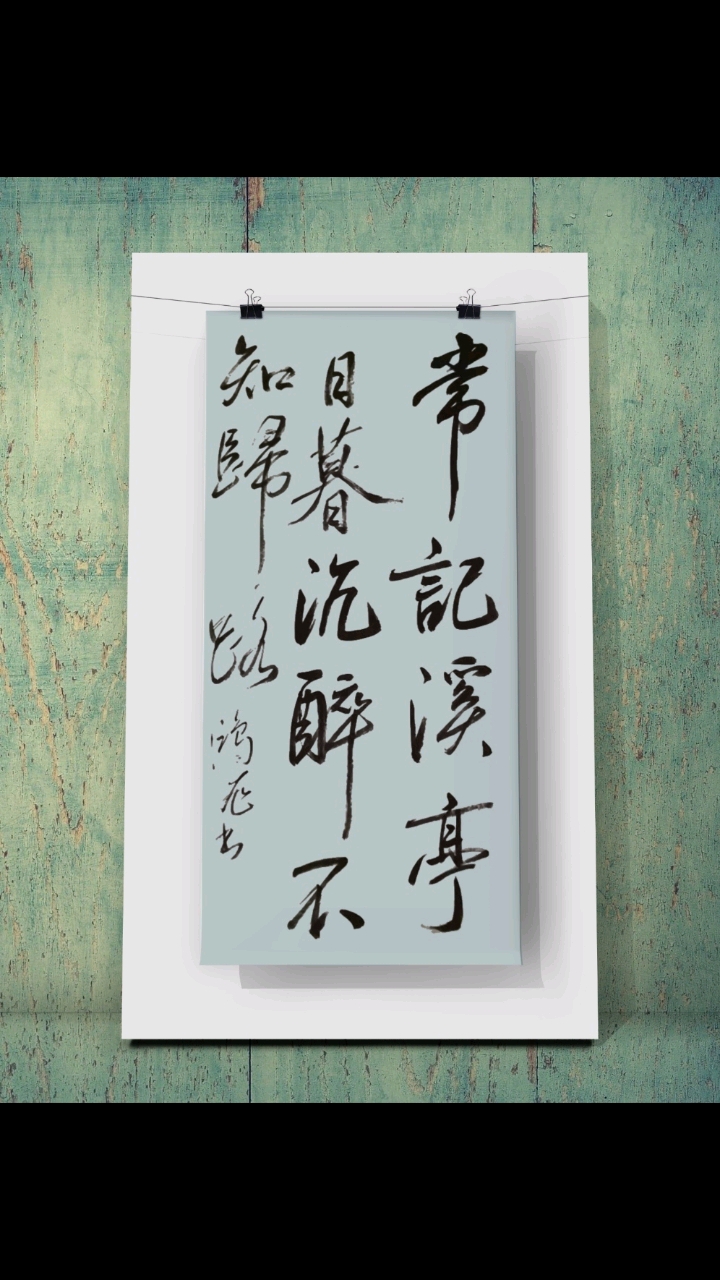 常記溪亭
日暮沉醉不
知歸路
書